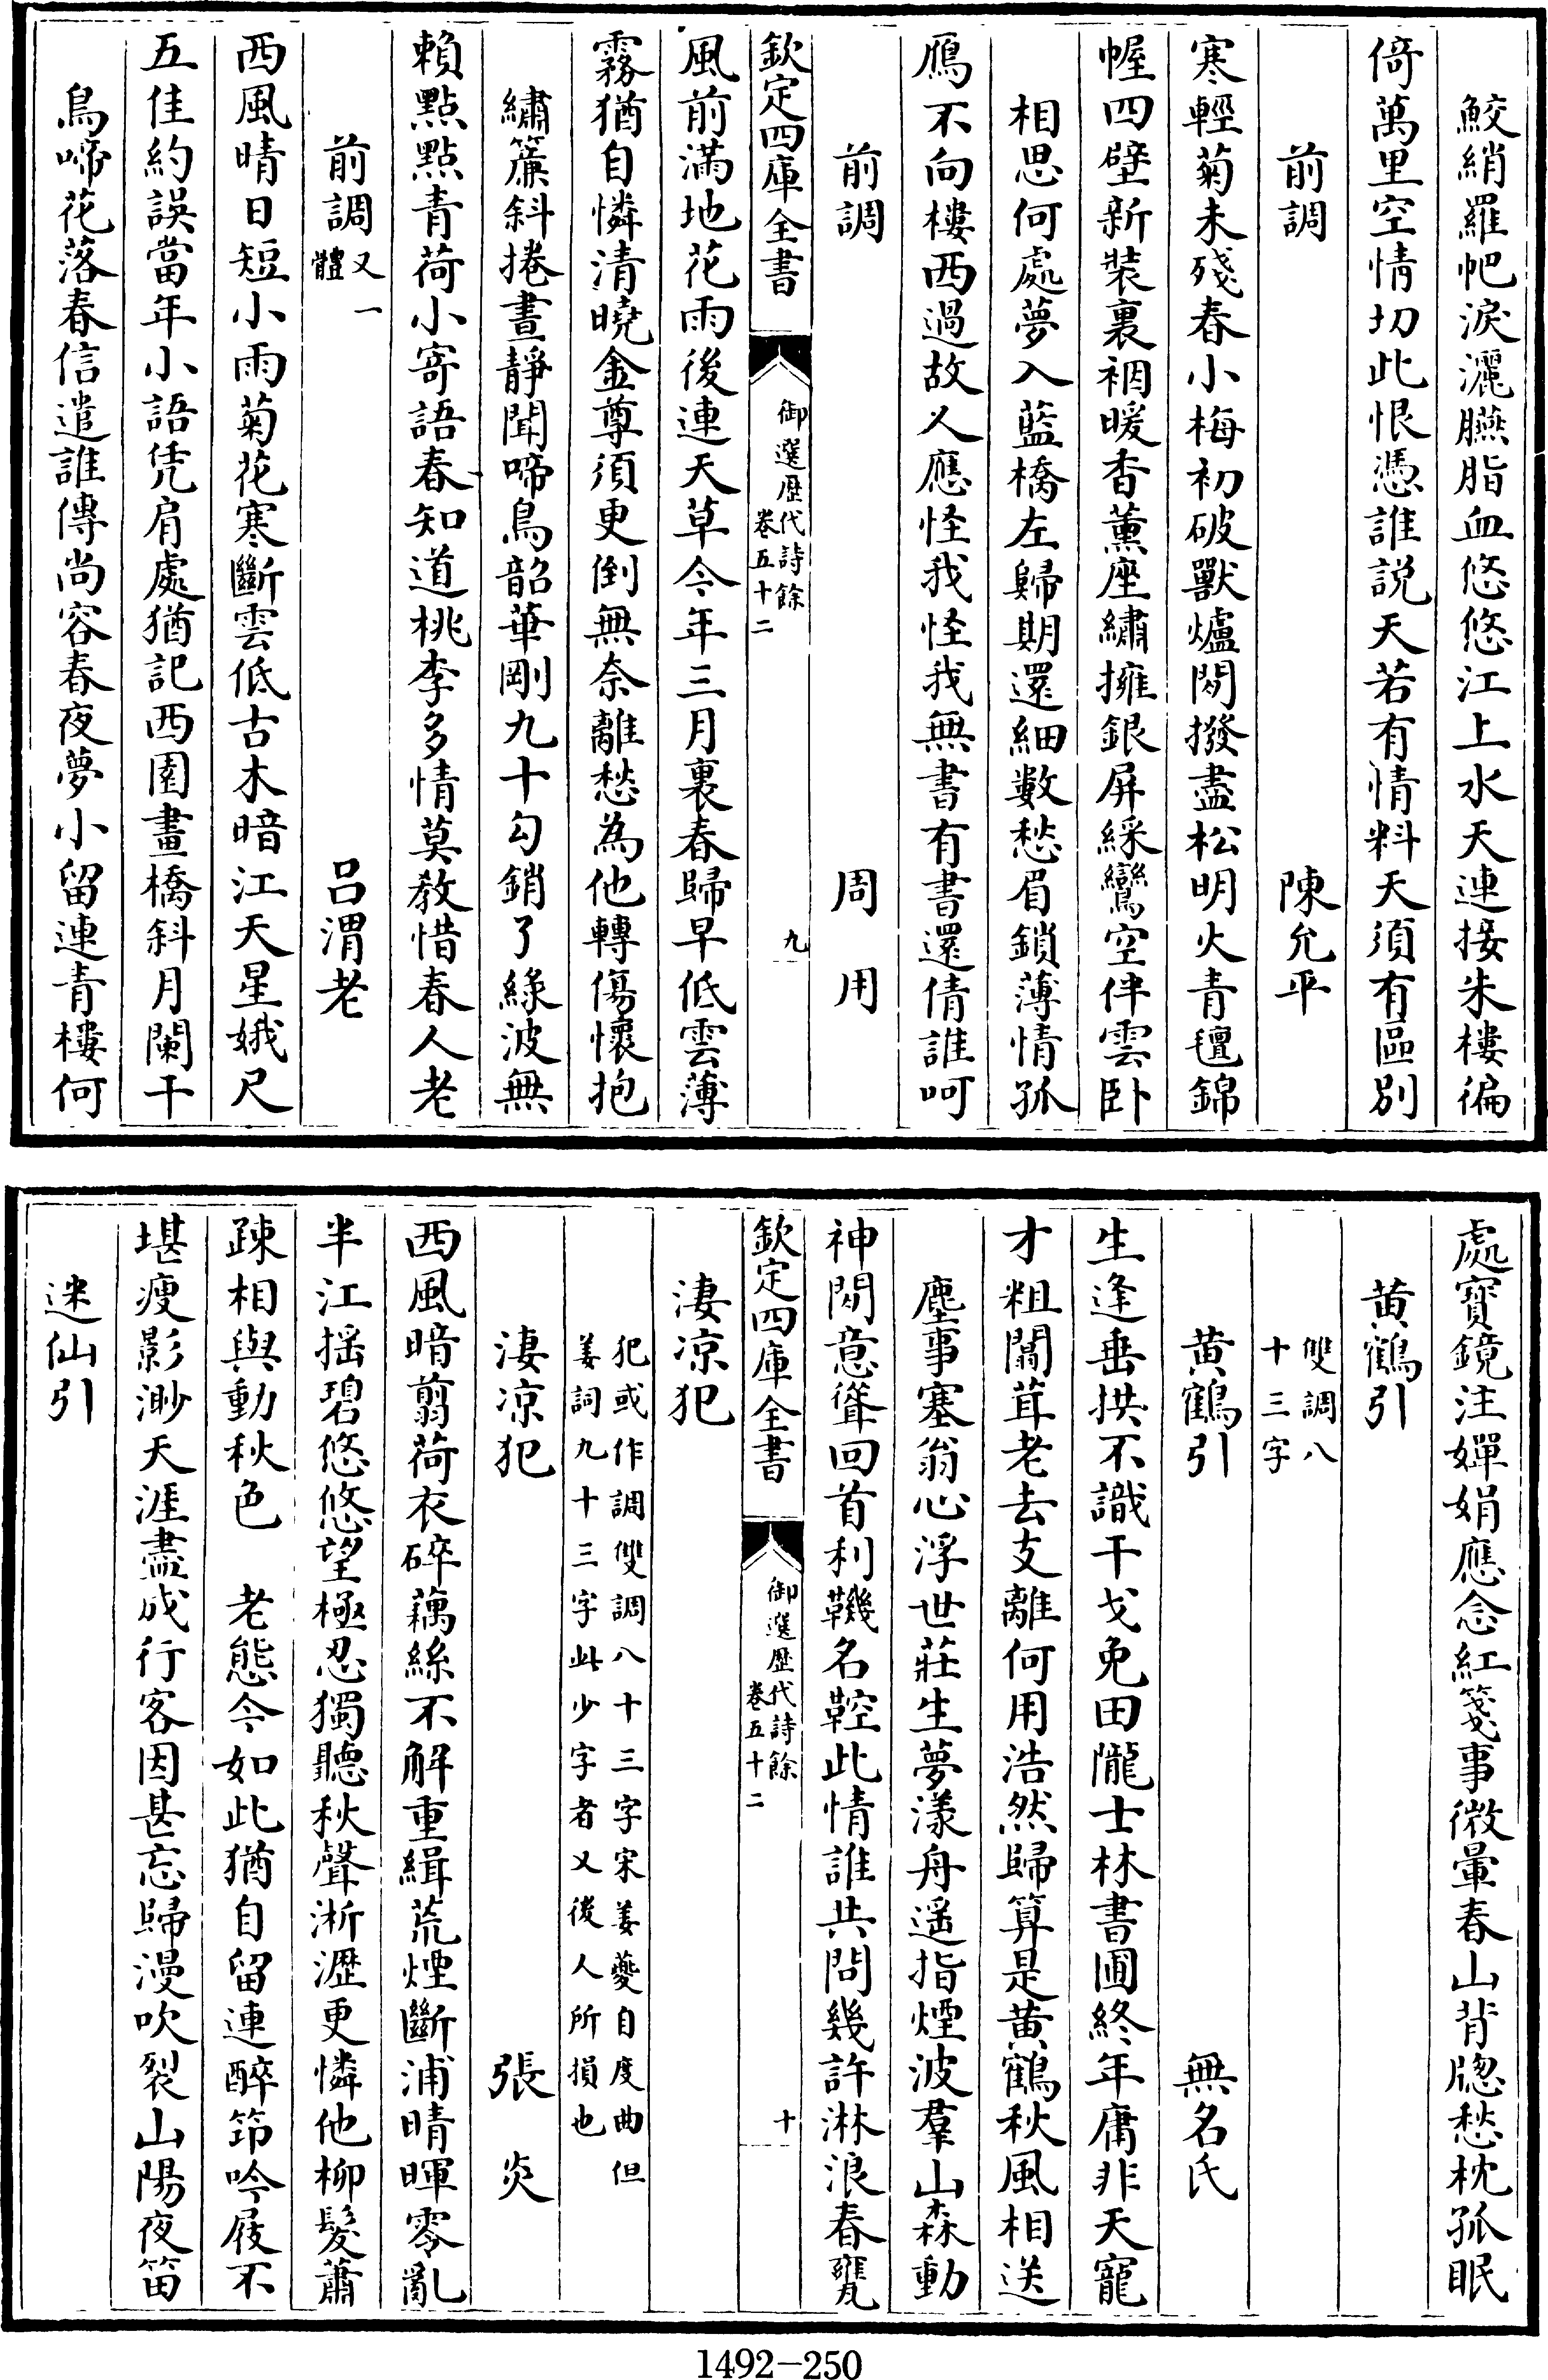 鮫綃羅帊淚灑臙脂血悠悠江上水天連接朱樓徧
倚萬里空情切此恨憑誰説天若有情料天須有區別
前調　陳允平
寒輕菊未殘春小梅初破獸爐閒撥盡松明火青氊錦
幄四壁新裝裹裀暖香薰座繡擁銀屏綵鸞空伴雲卧
相思何處夢入藍橋左歸期還細數愁眉鎖薄情孤
鴈不向樓西過故人應怪我怪我無書有書還倩誰呵
前調　周用
欽定四庫全書　御選歴代詩餘卷五十二　九
風前滿地花雨後連天草今年三月裏春歸早低雲薄
霧猶自憐清曉金尊須更倒無奈離愁為他轉傷懷抱
繡簾斜捲晝靜聞啼鳥韶華剛九十勾銷了綠波無
賴點點青荷小寄語春知道桃李多情莫教惜春人老
前調又一體　呂渭老
西風晴日短小雨菊花寒斷雲低古木暗江天星娥尺
五佳約誤當年小語凭肩處猶記西園畫橋斜月闌干
鳥啼花落春信遣誰傳尚容春夜夢小留連青樓何
處寶鏡注嬋娟應念紅箋事微暈春山背牕愁枕孤眠
黄鶴引
雙調八十三字
黄鶴引　無名氏
生逢垂拱不識干戈免田隴士林書圃終年庸非天寵
才粗闒茸老去支離何用浩然歸算是黄鶴秋風相送
塵事塞翁心浮世莊生夢漾舟遥指煙波羣山森動
神閒意聳回首利鞿名鞚此情誰共問幾許淋浪春甕
欽定四庫全書　御選歴代詩餘卷五十二　十
淒凉犯
犯或作調雙調八十三字宋姜夔自度曲但
姜詞九十三字此少字者又後人所損也
淒凉犯　張炎
西風暗翦荷衣碎藕絲不解重緝荒煙斷浦晴暉零亂
半江揺碧悠悠望極忍獨聽秋聲淅瀝更憐他柳髮蕭
疎相與動秋色　老態今如此猶自留連醉筇吟屐不
堪瘦影渺天涯盡成行客因甚忘歸漫吹裂山陽夜笛
迷仙引
1492-250